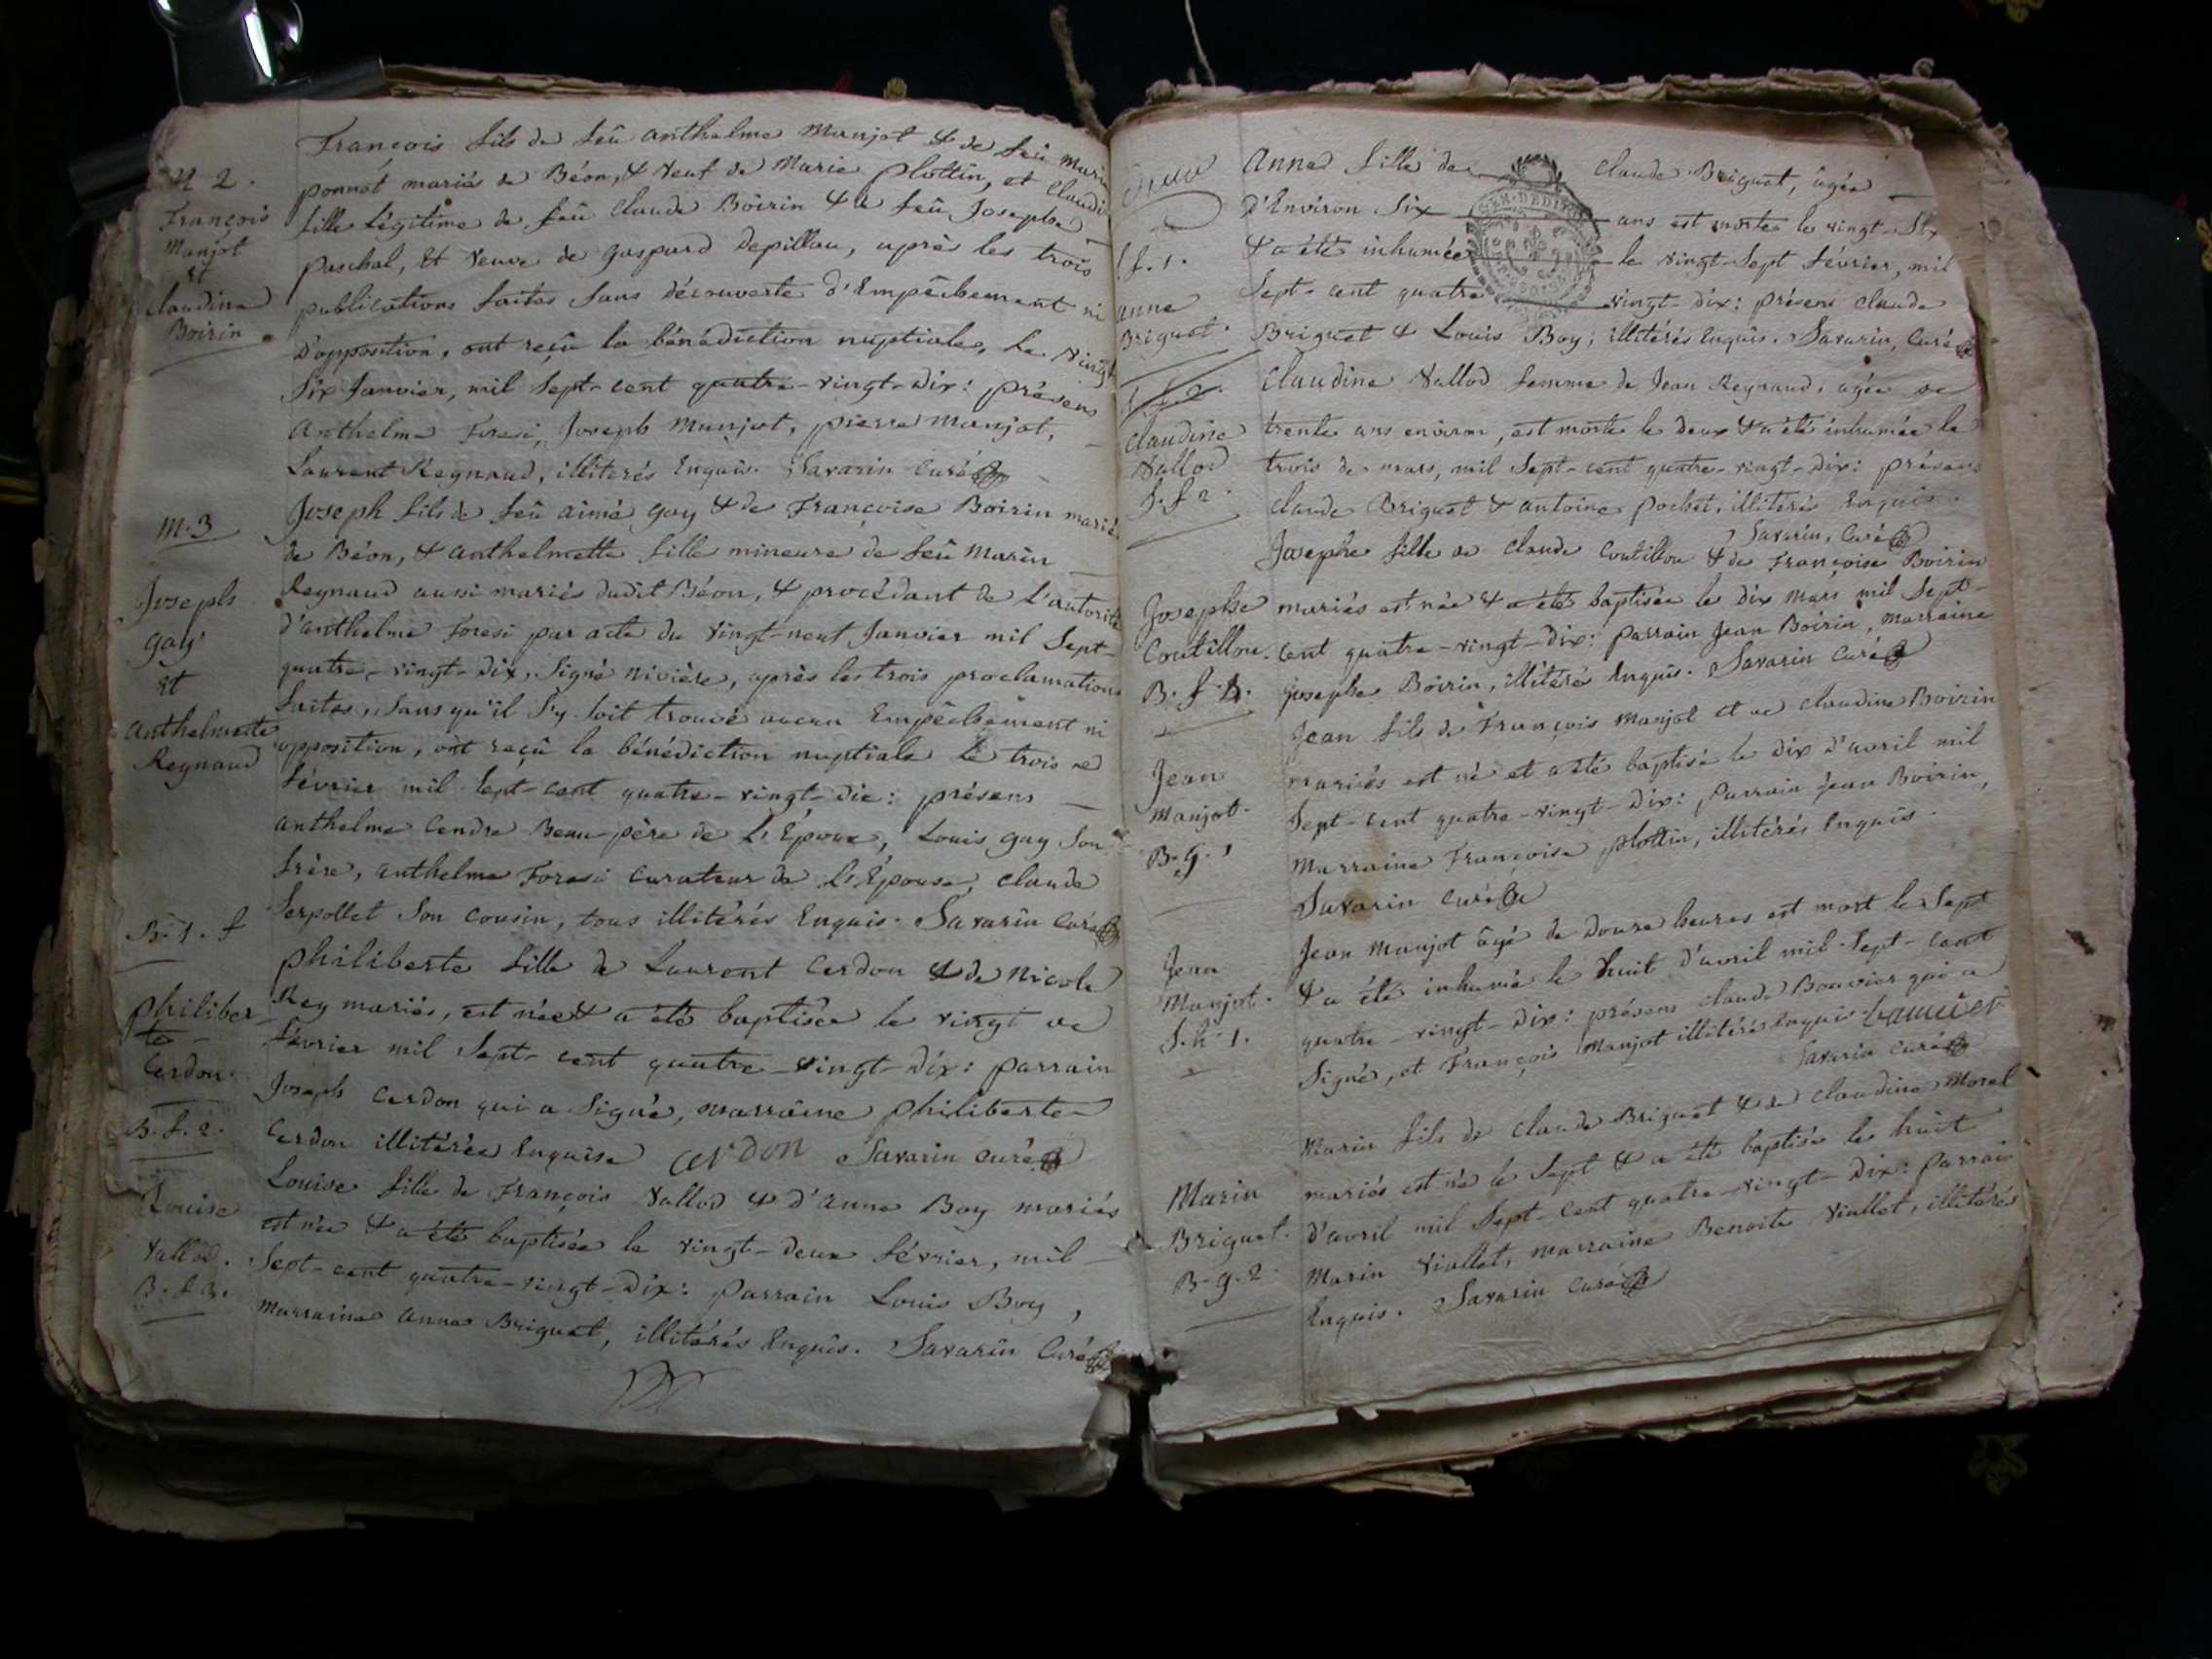 M 2.
François
Manjot
et
Claudine
Boirin
François fils de feû anthelme Manjot & de feû Marie
ponnet mariés de Béon, & veuf de Marie plottin, et Claudine
fille légitime de feû Claude Boirin & de feû Josephe
paschal, et veuve de gaspard depillou, après les trois
publications faites sans découverte d'Empêchement ni
d'opposition, ont reçû la bénédiction nuptiale, le vingt
Six Janvier, mil Sept-cent quatre-vingt-dix: présens
Anthelme Foresi, Joseph Manjot, pierre Manjot,
Laurent Reynaud, illiterés Enquis. Savarin Curé
M. 3
Joseph
gay
et
Anthelmette
Reynaud
Joseph fils de feû aimé gay & de Françoise Boirin mariés
de Béon, & anthelmette fille mineure de feû Marin
Reynaud aussi mariés dudit Béon, & procédant de L'autorité
d'anthelme Foresi par acte du vingt-neuf Janvier mil Sept-
quatre-vingt-dix, Signé nivière, après les trois proclamations
faites, Sans qu'il S'y soit trouvé aucun Empêchement ni
opposition, ont reçû la bénédiction nuptiale le trois de
février mil Sept-cent quatre-vingt-dix: présens
anthelme Cendre Beau-père de L'Époux, Louis gay Son
frère, anthelme Foresi curateur de L'Épouse, claude
Serpollet Son cousin, tous illitérés Enquis. Savarin Curé
B. 1. f
philiber
te
Cerdon.
philiberte fille de Laurent Cerdon & de nicole
Rey mariés, est née & a été baptisée le vingt de
février mil Sept-cent quatre-vingt-dix: parrain
Joseph Cerdon qui a Signé, marraine philiberte
Cerdon illitérée Enquise cerdon Savarin curé
B. f. 2.
Louise
Vallod.
B. f. 3.
Louise fille de François Vallod & d'anne Boy mariés
est née & a été baptisée le vingt-deux février, mil
Sept-cent quatre-vingt-dix: Parrain Louis Boy,
marraine anne Briguet, illitérés Enquis. Savarin Curé
S. f. 1.
anne
Briguet.
Anne fille de Claude Briguet, âgée
d'Environ Six ans est morte le vingt-Six
& a été inhumée le vingt-Sept février, mil
Sept-cent quatre vingt-dix: présens Claude
Briguet & Louis Boy; illitérés Enquis. Savarin, Curé
Claudine
Vallod
S. f 2.
Claudine Vallod femme de Jean Reynaud, agée de
trente ans environ, est morte le deux & a été inhumée le
trois de mars, mil Sept-cent quatre-vingt-dix: présens
claude Briguet & antoine pochet, illitérés Enquis.
Savarin, Curé
Josephe
Coutillou.
B. f 4.
Josephe fille de Claude Coutillou & de Françoise Boirin
mariés est née & a été baptisée le dix mars mil Sept-
cent quatre-vingt-dix: Parrain Jean Boirin, marraine
josephe Boirin, illitérés Enquis. Savarin Curé
Jean
Manjot.
B. g. 1
Jean fils de François Manjot et de Claudine Boirin
mariés est né et a été baptisé le dix d'avril mil
Sept-cent quatre-vingt-dix: Parrain Jean Boirin,
Marraine Françoise plottin, illitérés Enquis.
Savarin curé
Jean
Manjot.
Jean Manjot âgé de douze heures est mort le Sept
& a été inhumé le huit d'avril mil-Sept-cent
quatre-vingt-dix: présens claude Bouvier qui a
Signé, et François Manjot illitéré enquis bouvier
Savarin curé
Marin
Briguet.
B. g. 2.
Marin fils de Claude Briguet & de Claudine Morel
mariés est né le Sept & a été baptisé le huit
d'avril mil Sept-cent quatre-vingt-dix: Parrain
Marin Viallet, marraine Benoite Viallet, illitérés
Enquis. Savarin Curé